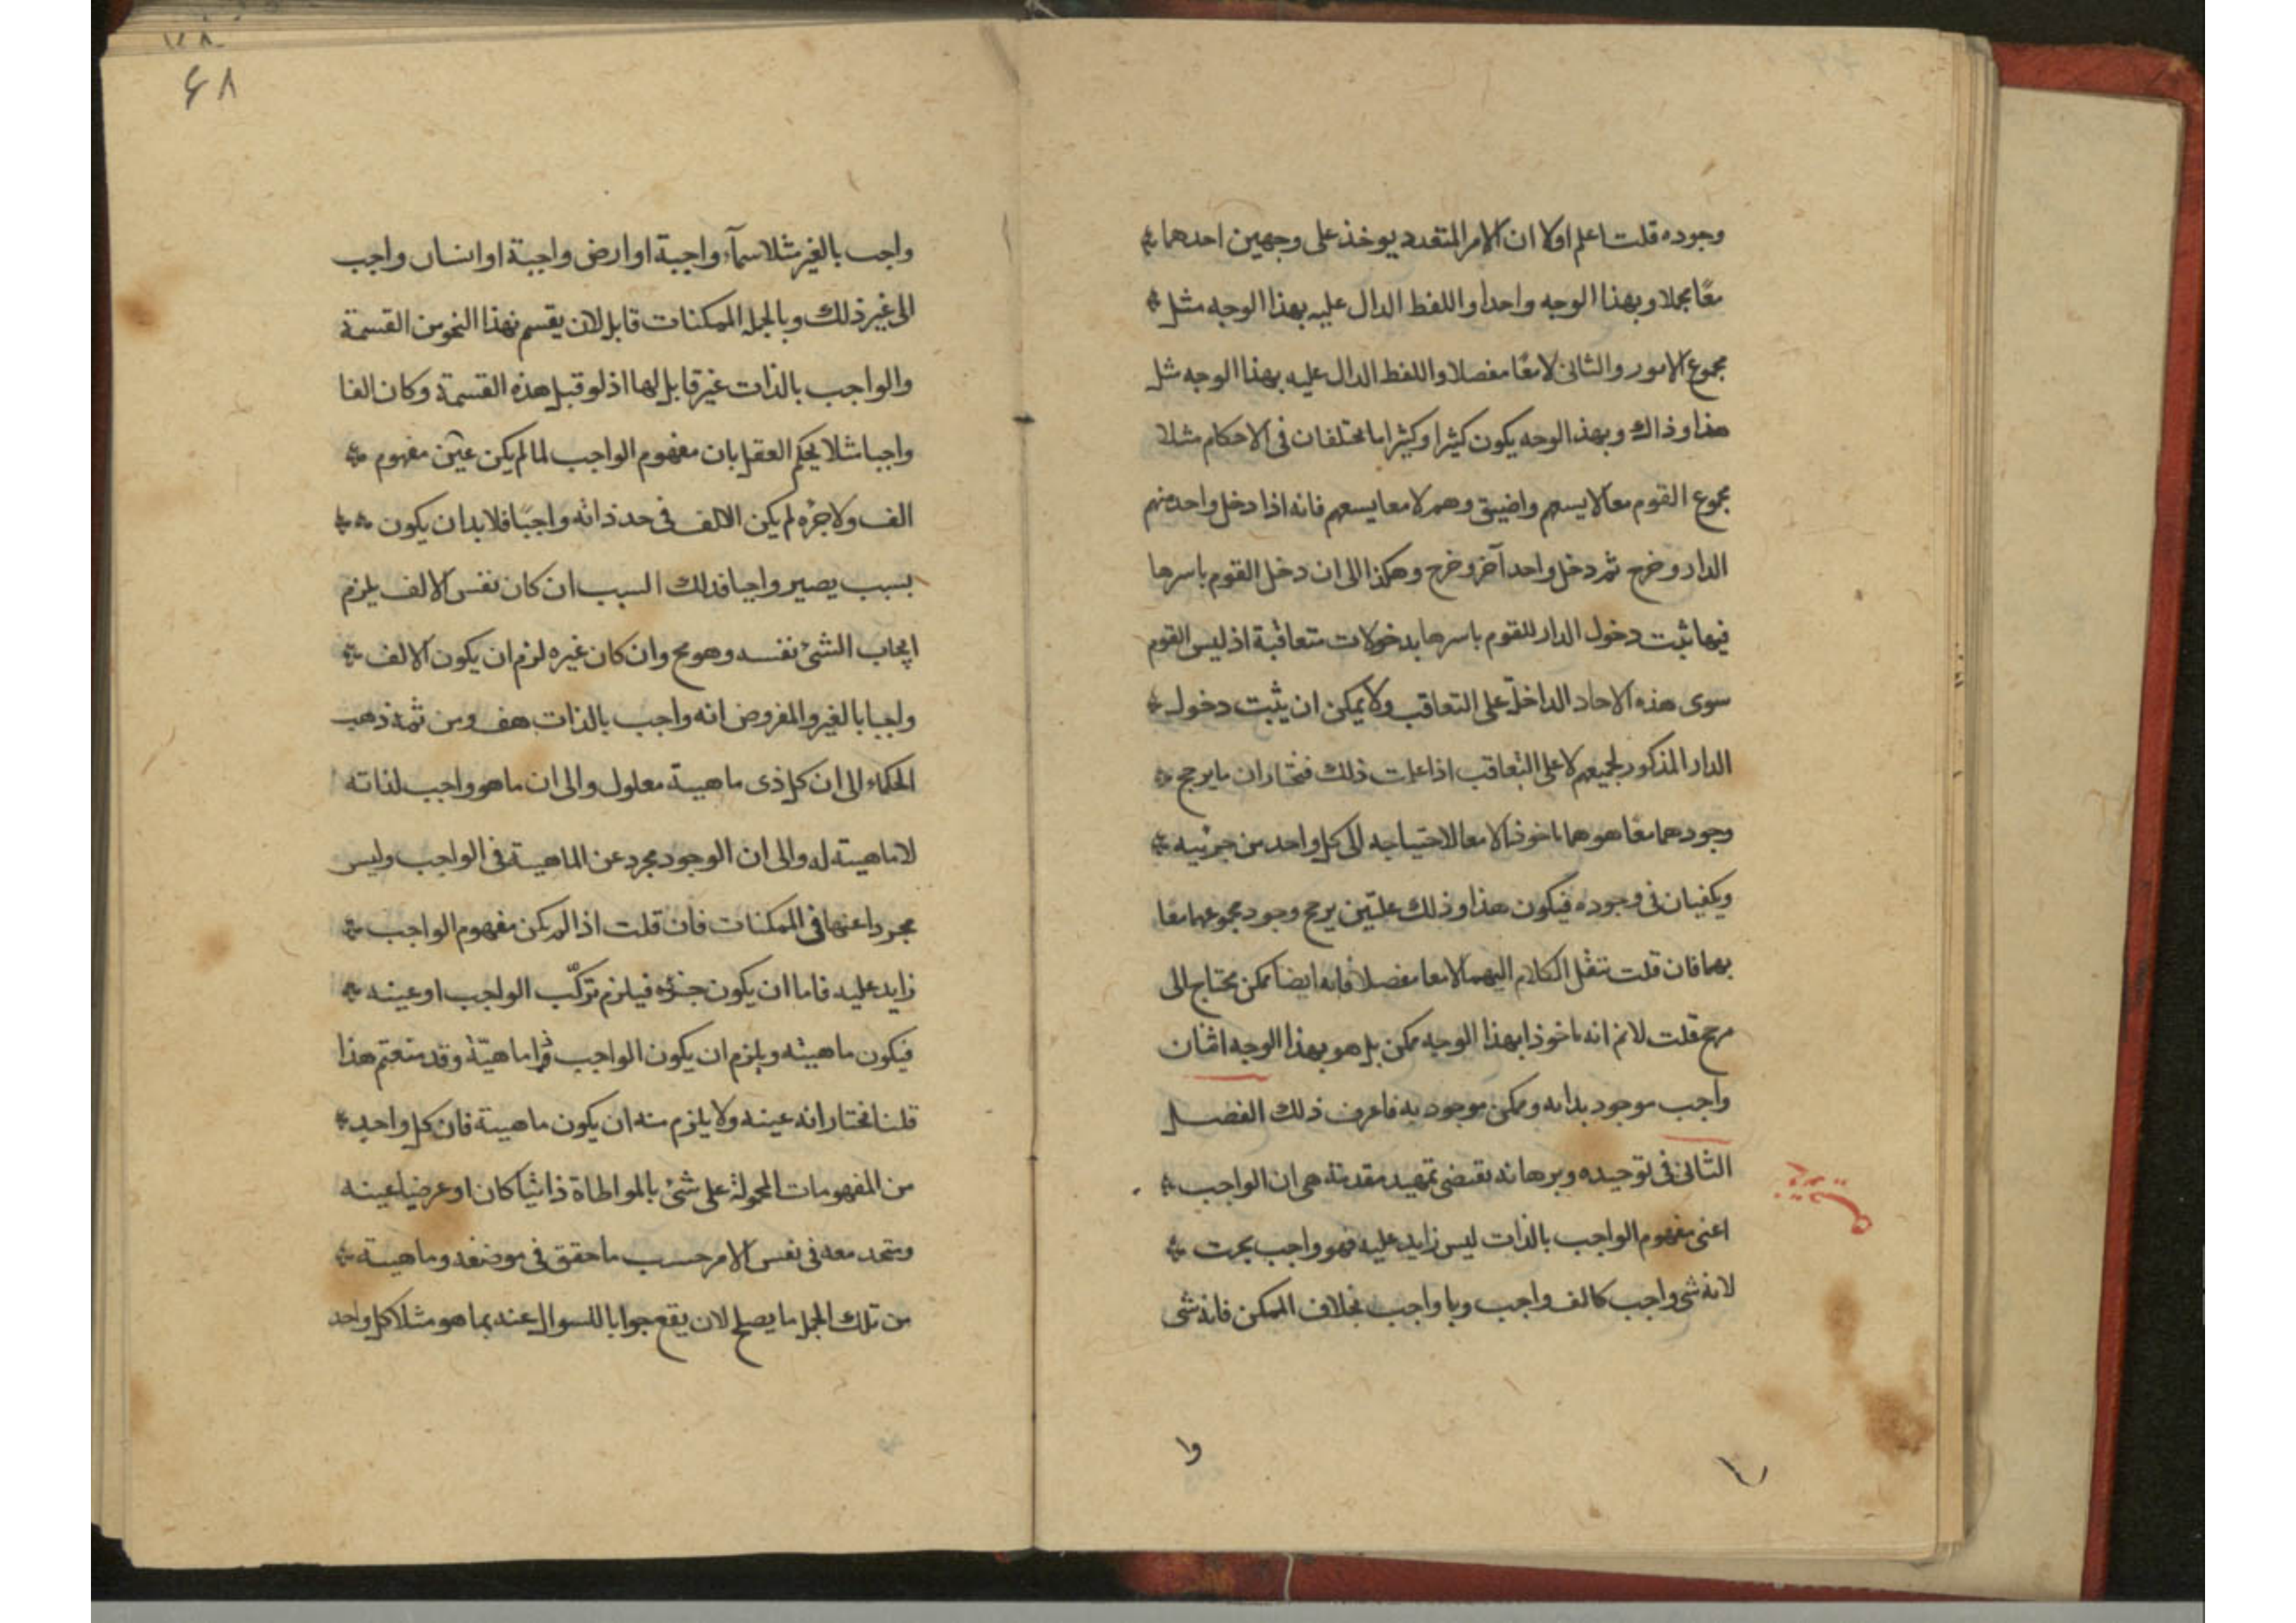 وجوده قلت اعلم اولا ان الامر المتعدد يوخذ على وجهين احدهما
معًا مجملا وبهذا الوجه واحدا واللفظ الدال عليه بهذا الوجه مثل
مجموع الامور والثانى لا معًا مفصلا واللفظ الدال عليه بهذا الوجه مثل
هذا وذاك وبهذ الوجه يكون كثيرا وكثيرا ما يختلفان فى الاحكام مثلا
مجموع القوم معا لا يسعهم واضيق وهم لا معا يسعهم فانه اذا دخل واحد منهم
الدار وخرج ثم دخل واحد آخر وخرج وهكذا الى ان دخل القوم باسرها
فيها ثبت دخول الدار للقوم باسرها بدخولات متعاقبة اذ ليس القوم
سوى هذه الاحاد الداخلة على التعاقب ولا يمكن ان يثبت دخول
الدار المذكور لجميعهم لا على التعاقب اذا علمت ذلك فنختار ان ما يرجح
وجودهما معًا هو هما ماخوذا لا معا لاحتياجه الى كل واحد من جزئيه
ويكفيان فى وجوده فيكون هذا وذلك علتين يرجح وجود مجموعهما معًا
بهما فان قلت ننقل الكلام اليهما لا معا مفصلا فانه ايضا ممكن يحتاج الى
مرجح قلت لانم انه ماخوذا بهذا الوجه ممكن بل هو بهذا الوجه اثنان
واجب موجود بذاته وممكن موجود به فاعرف ذلك الفصل
الثانى فى توحيده وبرهانه يقتضى تمهيد مقدمة هى ان الواجب
اعنى مفهوم الواجب بالذات ليس زايد عليه فهو واجب بحت
لا انه شى واجب كالف واجب وبا واجب بخلاف الممكن فانه شى
وا
٤٨
واجب بالغير مثلا سمآء واجبة او ارض واجبة او انسان واجب
الى غير ذلك وبالجملة الممكنات قابل لان يقسم بهذا النحو من القسمة
والواجب بالذات غير قابل لها اذ لو قبل هذه القسمة وكان الفا
واجبا مثلا يحكم العقل بان مفهوم الواجب لما لم يكن عين مفهوم
الف ولا جزه لم يكن الالف فى حد ذاته واجبًا فلا بد ان يكون
بسبب يصير واجبا فذلك السبب ان كان نفس الالف يلزم
ايجاب الشئ نفسه وهو مح وان كان غيره لزم ان يكون الالف
واجبا بالغير والمفروض انه واجب بالذات هف ومن ثمه ذهب
الحكماء الى ان كل ذى ماهية معلول والى ان ما هو واجب لذاته
لا ماهية له والى ان الوجود مجرد عن الماهية فى الواجب وليس
مجردا عنها فى الممكنات فان قلت اذا لم يكن مفهوم الواجب
زايد عليه فاما ان يكون جزؤه فيلزم تركّب الواجب او عينه
فيكون ماهيته ويلزم ان يكون الواجب ذا ماهيّة وقد منعتم هذا
قلنا نختار انه عينه ولا يلزم منه ان يكون ماهية فان كل واحد
من المفهومات المحمولة على شئ بالمواطاة ذاتيا كان او عرضيا عينه
ومتحد معه فى نفس الامر حسب ما حقق فى موضعه وماهية
من تلك الجملة ما يصلح لان يقع جوابا للسوال عنه بما هو مثلا كل واحد